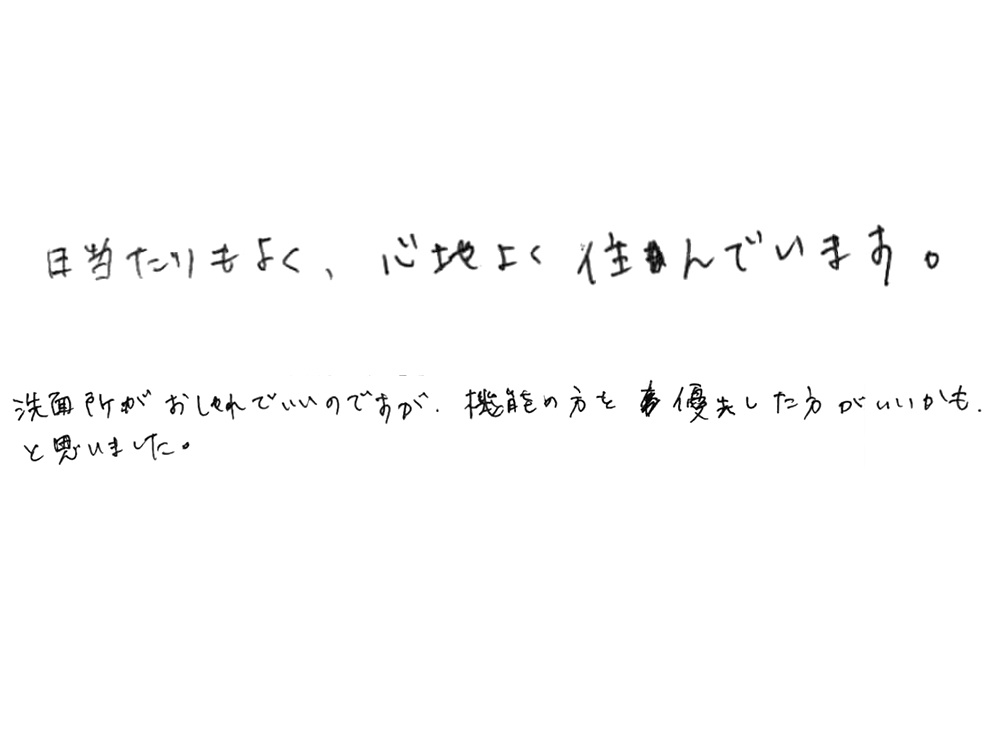 日当たりもよく、心地よく住んでいます。
洗面所がおしゃれでいいのですが、機能の方を優先した方がいいかも、
と思いました。